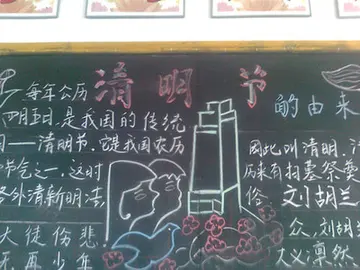 清明节
的由来
每年公历
四月五日是我国的传统
日——清明节,它是我国农历
节气之一,这时
外清新明洁,
大徒伤悲
无再少年
因此叫清明,
历来有扫墓祭
俗
刘胡兰
众,刘胡
大义凛然